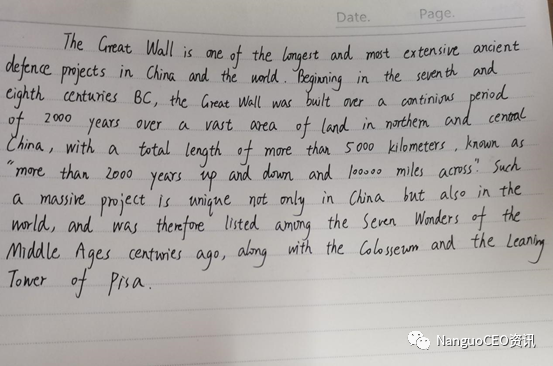 Date.    Page.
The Great Wall is one of the longest and most extensive ancient
defence projects in China and the world. Beginning in the seventh and
eighth centuries BC, the Great Wall was built over a continious period
of 2000 years over a vast area of land in northern and central
China, with a total length of more than 5000 kilometers, known as
"more than 2000 years up and down and 100000 miles across". Such
a massive project is unique not only in China but also in the
world, and was therefore listed among the Seven Wonders of the
Middle Ages centuries ago, along with the Colosseum and the Leaning
Tower of Pisa.
NanguoCEO资讯